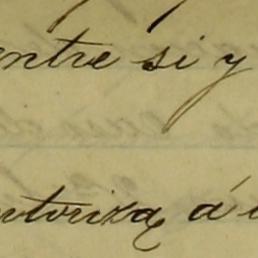 entre si y
autoriza á